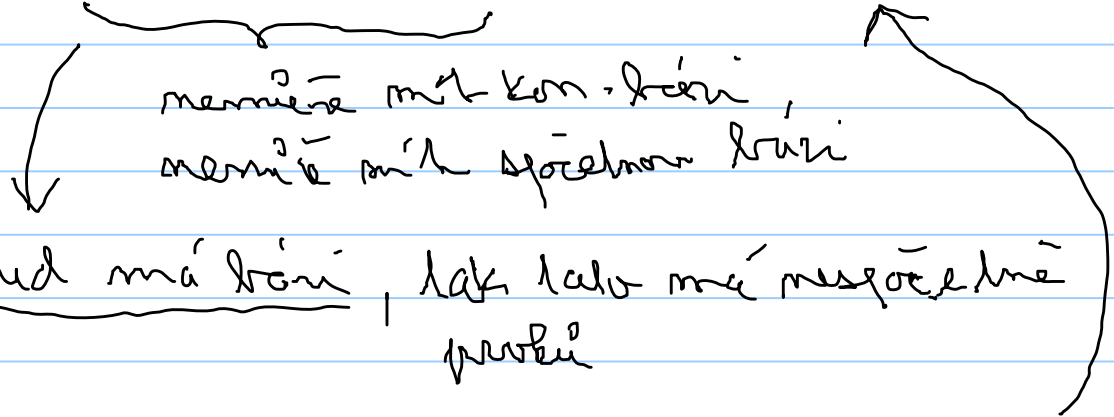 nemůže mít kon. bázi,
nemůže mít spočetnou bázi
ud má bázi, tak tato má nespočetně
prvků